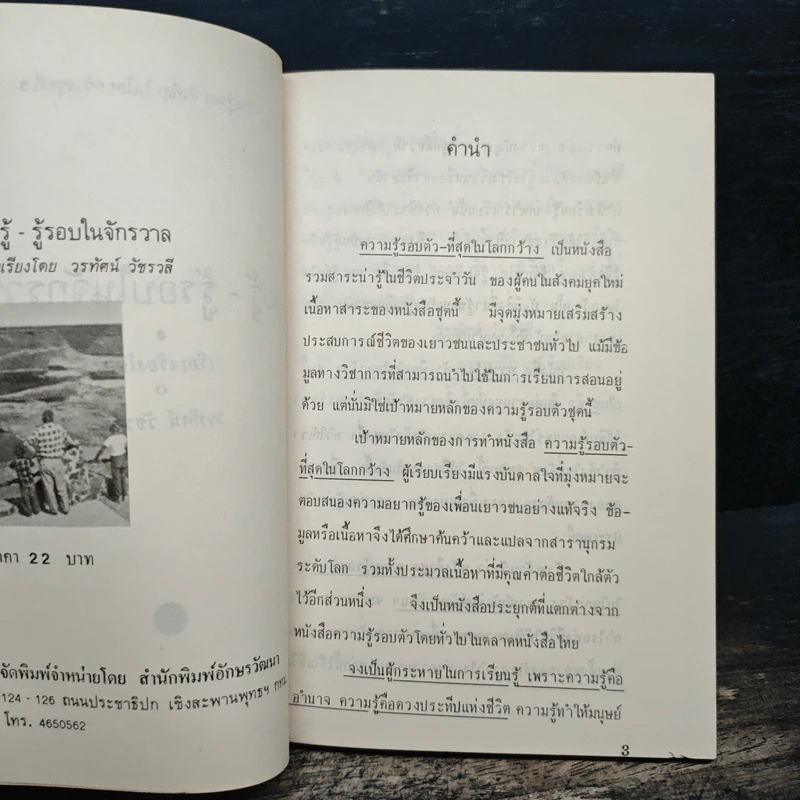 รู้ - รู้รอบในจักรวาล
เรียงโดย วรทัศน์ วัชรวสี
ราคา 22 บาท
จัดพิมพ์จำหน่ายโดย สำนักพิมพ์อักษรวัฒนา
124 - 126 ถนนประชาธิปก เชิงสะพานพุทธฯ กทม.
โทร. 4650562
คำนำ
ความรู้รอบตัว-ที่สุดในโลกกว้าง เป็นหนังสือ
รวมสาระน่ารู้ในชีวิตประจำวัน ของผู้คนในสังคมยุคใหม่
เนื้อหาสาระของหนังสือชุดนี้ มีจุดมุ่งหมายเสริมสร้าง
ประสบการณ์ชีวิตของเยาวชนและประชาชนทั่วไป แม้มีข้อ
มูลทางวิชาการที่สามารถนำไปใช้ในการเรียนการสอนอยู่
ด้วย แต่นั่นมิใช่เป้าหมายหลักของความรู้รอบตัวชุดนี้
เป้าหมายหลักของการทำหนังสือ ความรู้รอบตัว-
ที่สุดในโลกกว้าง ผู้เรียบเรียงมีแรงบันดาลใจที่มุ่งหมายจะ
ตอบสนองความอยากรู้ของเพื่อนเยาวชนอย่างแท้จริง ข้อ-
มูลหรือเนื้อหาจึงได้ศึกษาค้นคว้าและแปลจากสารานุกรม
ระดับโลก รวมทั้งประมวลเนื้อหาที่มีคุณค่าต่อชีวิตใกล้ตัว
ไว้อีกส่วนหนึ่ง จึงเป็นหนังสือประยุกต์ที่แตกต่างจาก
หนังสือความรู้รอบตัวโดยทั่วไปในตลาดหนังสือไทย
จงเป็นผู้กระหายในการเรียนรู้ เพราะความรู้คือ
อำนาจ ความรู้คือดวงประทีปแห่งชีวิต ความรู้ทำให้มนุษย์
3